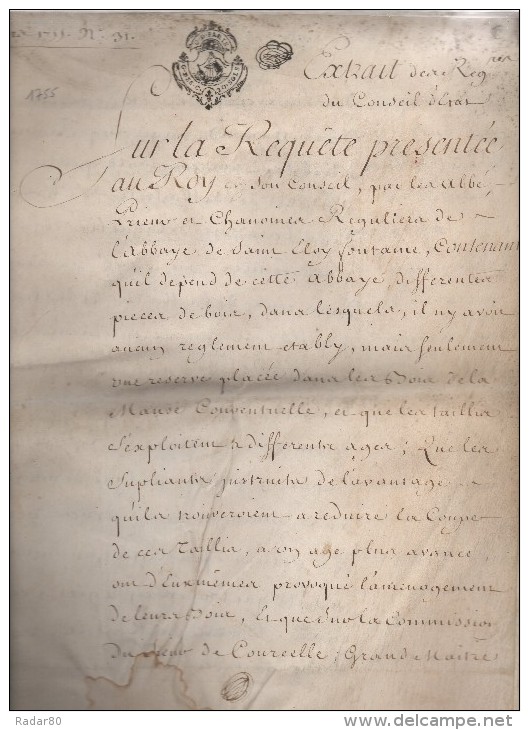 1755
Extrait des Reg^res
du Conseil d'Etat
Sur la Requête presentée
au Roy en son Conseil, par les Abbé,
Prieur et Chanoines Reguliers de
l'abbaye de Saint Eloy fontaine, Contenant
qu'il depend de cette abbaye, differentes
pieces de bois, dans lesquels, il ny avoit
aucun reglement etably, mais seulement
une reserve placée dans les Bois de la
Manse Conventuelle, et que les taillis
s'exploitent a differents ages; Que les
Supliants justruits de l'avantage
qu'ils trouveroient a reduire la Coupe
de ces Taillis, a un age plus avancé
ont d'Euxmêmes provoqué l'amenagement
de leurs Bois, Et que sur la Commission
Du Sieur de Courcelle, Grand Maitre
Radar80
delcampe.net